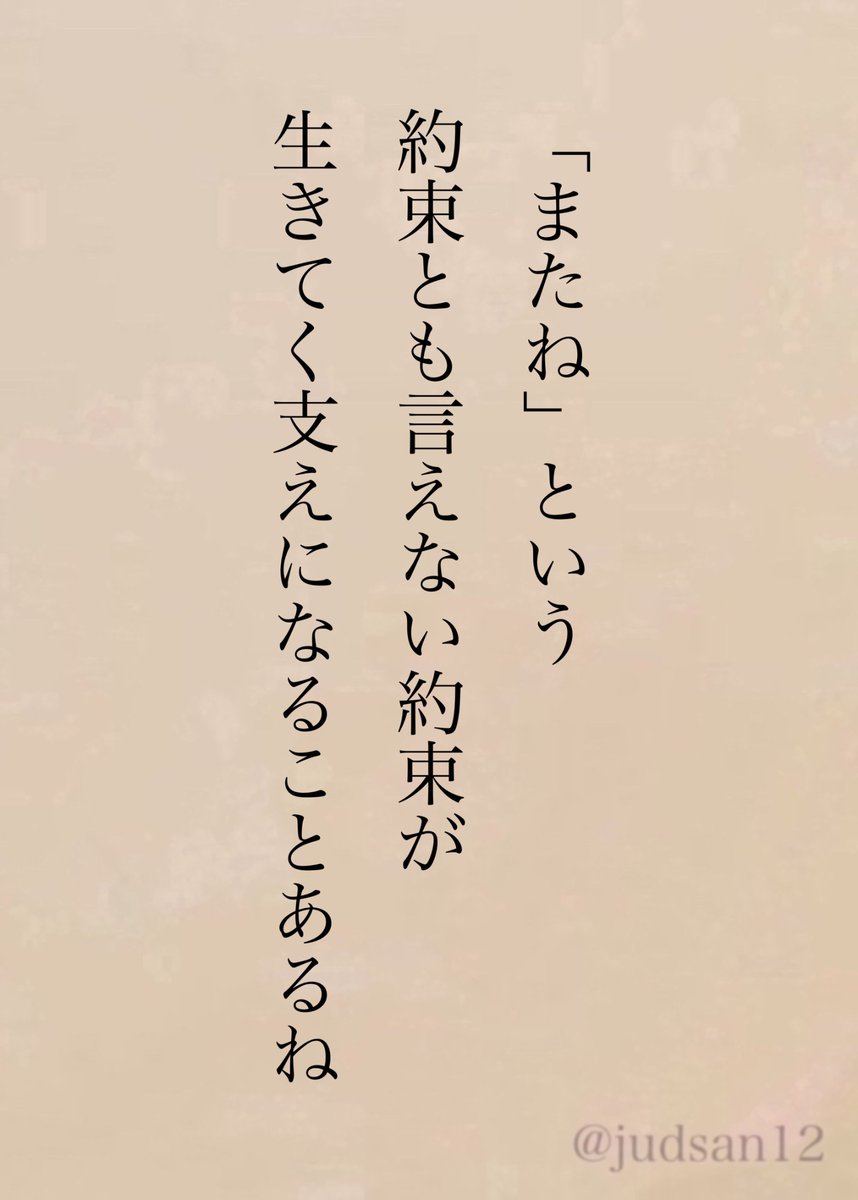 「またね」という
約束とも言えない約束が
生きてく支えになることあるね
@judsan12